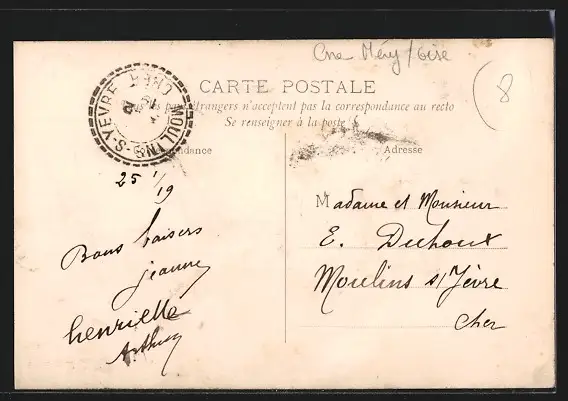 Cne Méry/Oise
8
CARTE POSTALE
Tous les pays étrangers n'acceptent pas la correspondance au recto
Se renseigner à la poste
Correspondance
Adresse
MOULINS-S-YEVRE CHER
25 1/19
Bons baisers
jeanne
henriette
Arthur
Madame et Monsieur
E. Duhoux
Moulins s/Yèvre
Cher